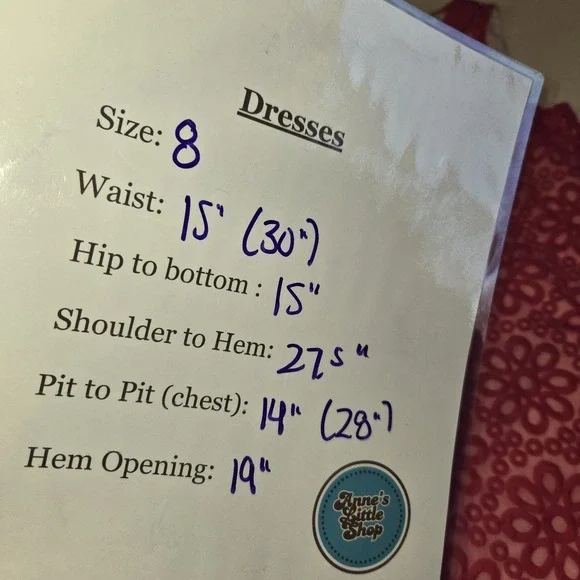 Dresses
Size: 8
Waist: 15" (30")
Hip to bottom : 15"
Shoulder to Hem: 27.5"
Pit to Pit (chest): 14" (28")
Hem Opening: 19"
Anne's
Little
Shop